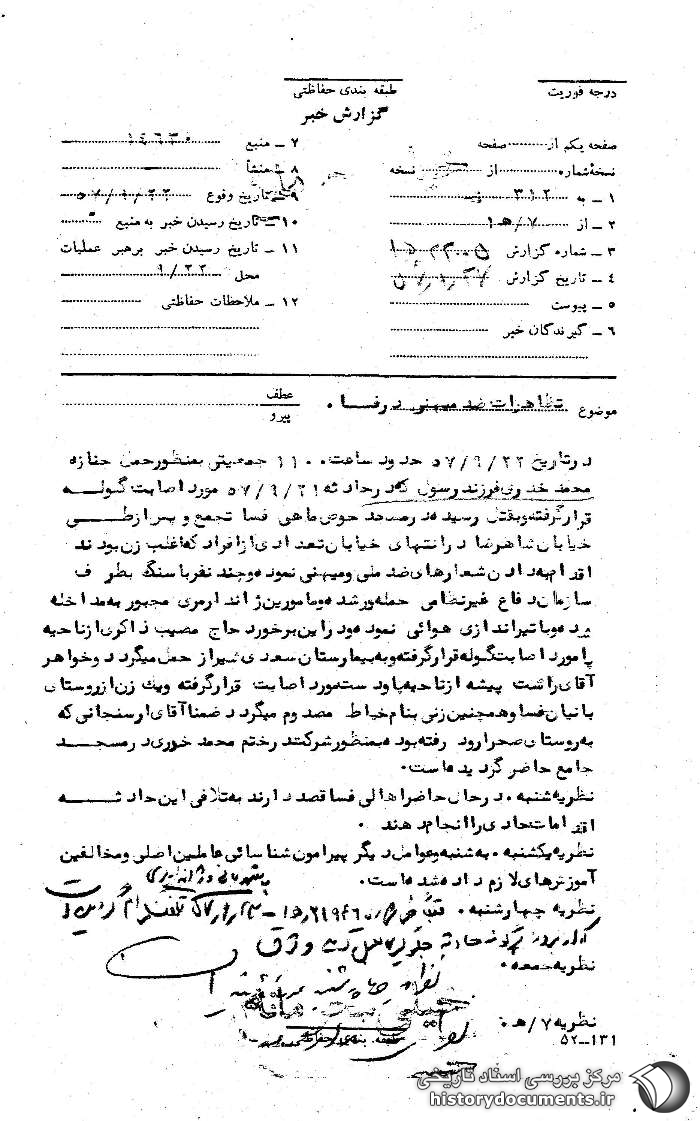 درجه فوریت
طبقه بندی حفاظتی
گزارش خبر
صفحه یکم از صفحه
نسخه شماره از نسخه
۱ – به ۳۱۲
۲ – از ۷/ه‍ ۱
۳ – شماره گزارش
۴ – تاریخ گزارش
۵ – پیوست
۶ – گیرندگان خبر
۷ – منبع ۱۴۶۳۰
۸ – منشأ
۹ – تاریخ وقوع
۱۰ – تاریخ رسیدن خبر به منبع
۱۱ – تاریخ رسیدن خبر برهبر عملیات
محل ۹/۲۲
۱۲ – ملاحظات حفاظتی
موضوع تظاهرات ضد میهنی در فسا .
عطف
پیرو
در تاریخ ۵۷/۹/۲۲ حدود ساعت ۱۱۰۰ جمعیتی بمنظور حمل جنازه
محمد خدری فرزند رسول که در حادثه ۵۷/۹/۲۱ مورد اصابت گلوله
قرار گرفته و بقتل رسیده در مسجد حوض ماهی فسا تجمع و پس از طی
خیابان شاهرضا در انتهای خیابان تعدادی از افراد که اغلب زن بودند
اقدام به دادن شعارهای ضد ملی و میهنی نموده و چند نفر با سنگ بطرف
سازمان دفاع غیرنظامی حمله ور شده و مامورین ژاندارمری مجبور به مداخله
بوده و با تیراندازی هوائی نموده و در این برخورد حاج مصیب ذاکری از ناحیه
پا مورد اصابت گلوله قرار گرفته و به بیمارستان سعدی شیراز حمل میگردد و خواهر
آقای راشت پیشه از ناحیه پا و دست مورد اصابت قرار گرفته و یک زن از روستای
بانیان فسا و همچنین زنی بنام خیاط مصدوم میگردد ضمنا آقای ارسنجانی که
به روستای صحرارود رفته بوده بمنظور شرکت در ختم محمد خدری در مسجد
جامع حاضر گردیده است.
نظریه شنبه . در حال حاضر اهالی فسا قصد دارند به تلافی این حادثه
اقدامات حادی را انجام دهند .
نظریه یکشنبه . به شنبه و عوامل دیگر پیرامون شناسائی عاملین اصلی و مخالفین
آموزشهای لازم داده شده است.
نظریه چهارشنبه .
نظریه جمعه .
نظریه ۷/ه‍ .
خیلی
طبقه بندی حفاظتی
۵۲–۱۳۱
مرکز بررسی اسناد تاریخی
historydocuments.ir